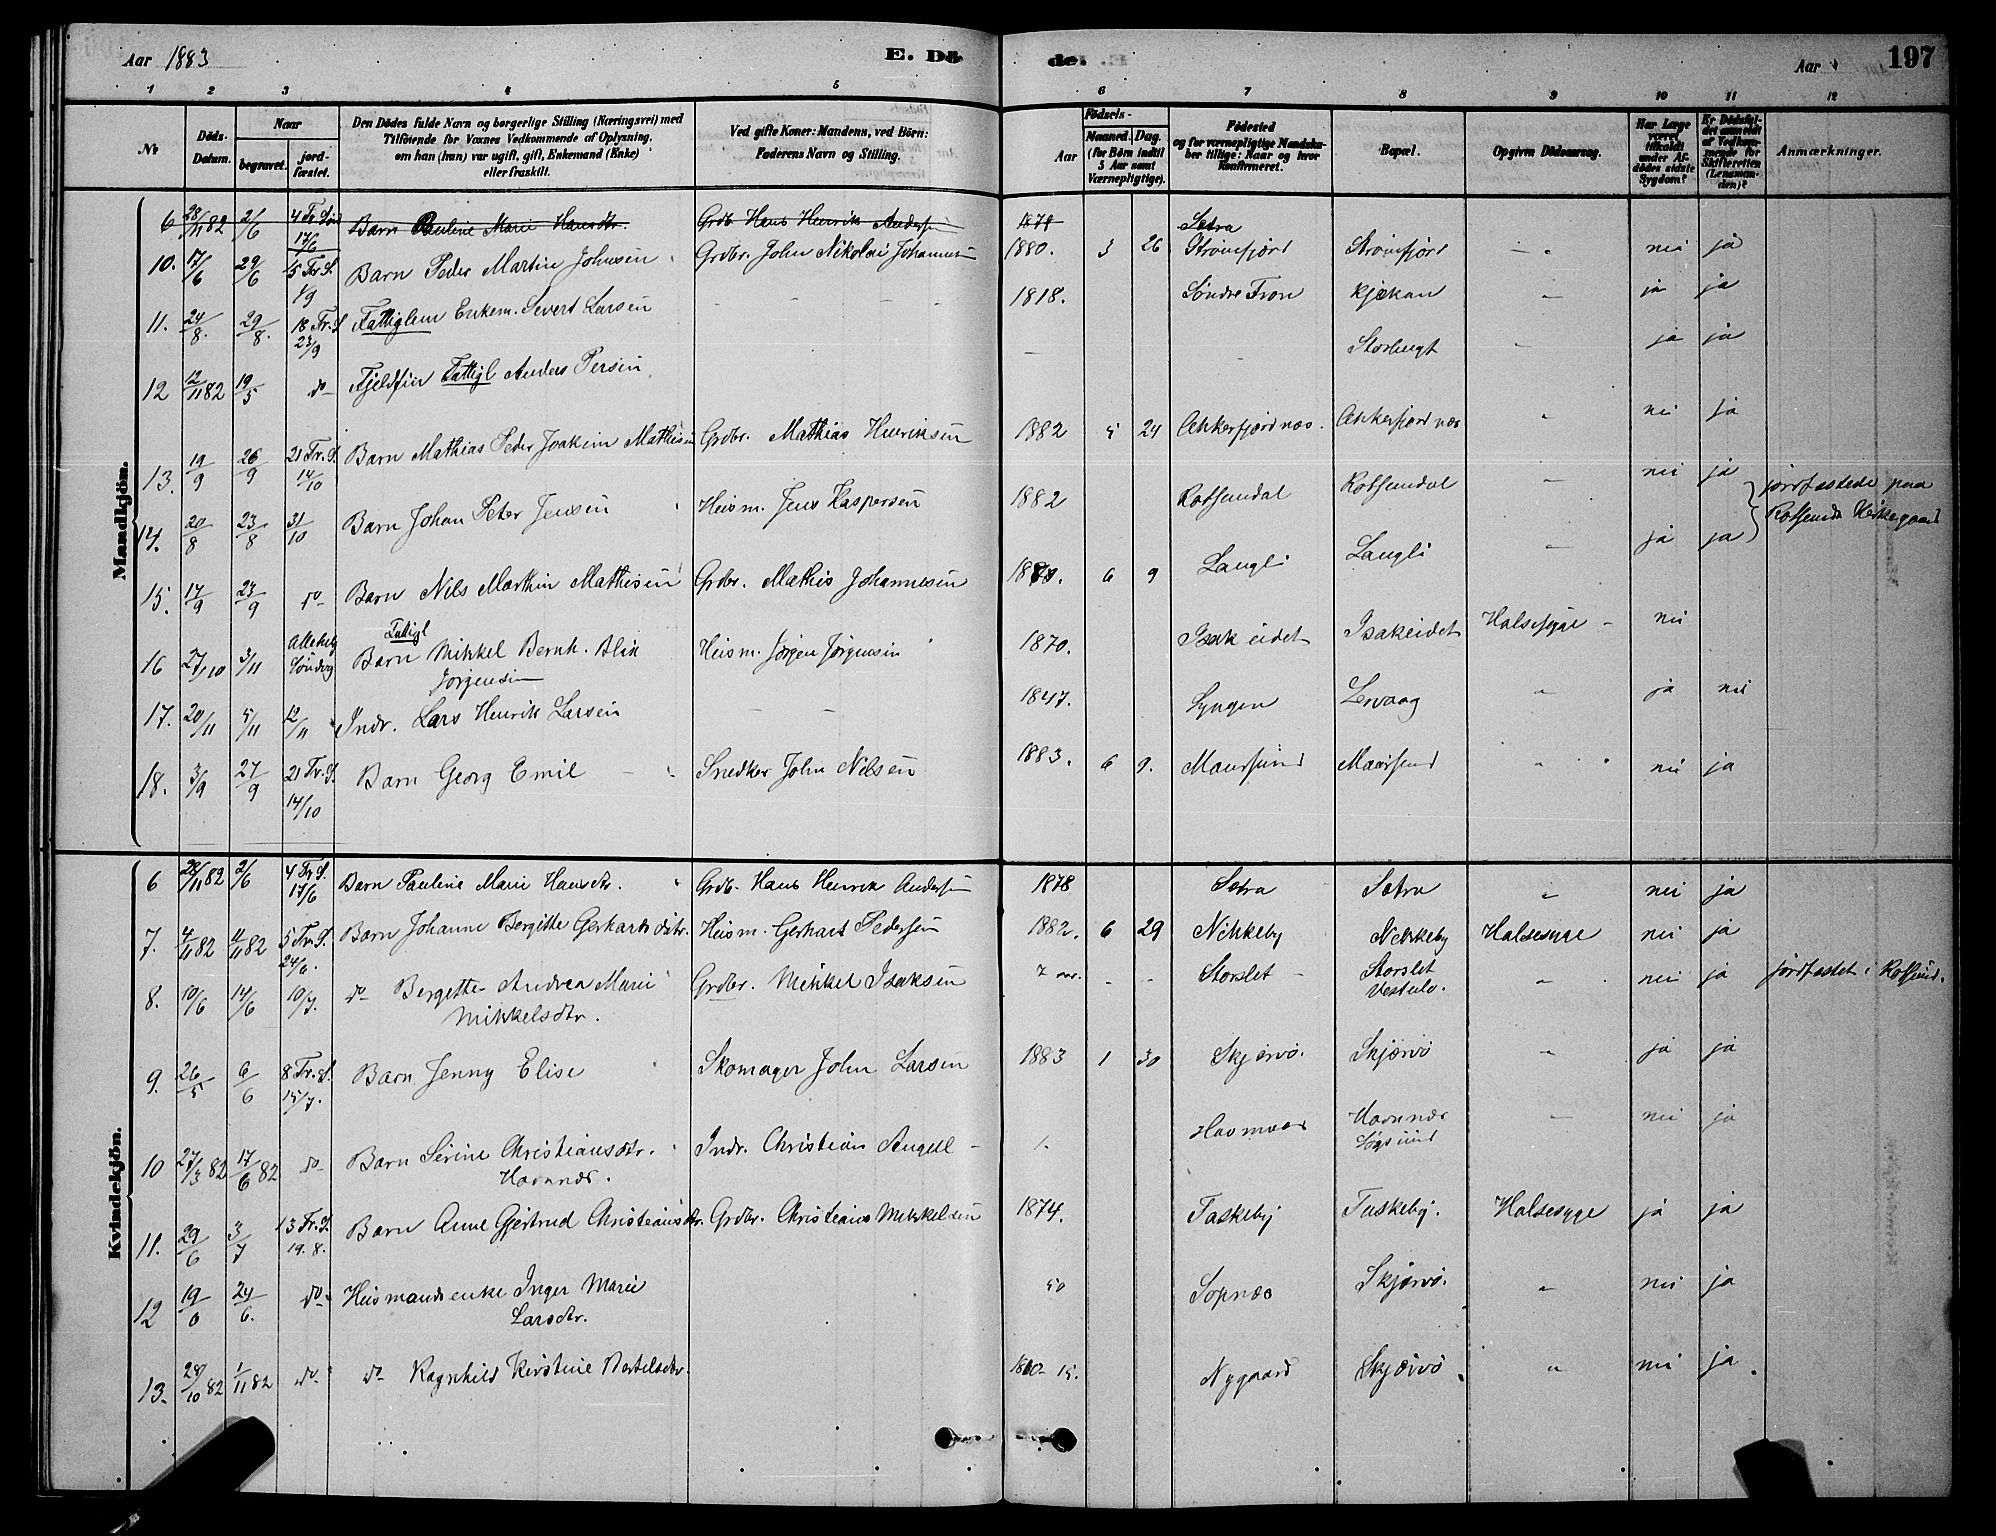 Aar 1883 E. Dö de. Aar 197
1 2 3 4 5 6 7 8 9 10 11 12
№ Döds-Datum. Naar begravet. jord-fæstet. Den Dödes fulde Navn og borgerlige Stilling (Næringsvei) med Tilföiende for Voxnes Vedkommende af Oplysning, om han (hun) var ugift, gift, Enkemand (Enke) eller fraskilt. Ved gifte Koner: Mandens, ved Börn: Faderens Navn og Stilling. Födsels- Aar Maaned. Dag. (for Börn indtil 5 Aar samt Værnepligtige). Födested og for værnepligtige Mandska-ber tillige: Naar og hvor Konfirmeret. Bopæl. Opgiven Dödsaarsag. Har Læge været tilkaldt under Af-dödes sidste Sygdom? Er Dödsfal-det anmeldt af Vedkom-mende for Skifteretten (Lensman-den)? Anmærkninger.
Mandkjön.
6 28/11 82 2/6 4 Tr. Sönd 17/6 Barn Pauline Marie Hansdtr. Grdb. Hans Henrik Anders 1878 Setra
10. 17/6 29/6 5 Tr. S. 1/9 Barn Peder Martin Johnsen Grdbr. John Nikolai Johannes 1880. 3 26 Strömfjord Strömfjord " nei ja
11. 24/8. 29/8. 18 Tr. S 23/9 Fattiglem Enkem. Severt Larsen 1818. Söndre Fron Kjækan " ja ja
12 12/11 82 19/5 do Fjeldfin Fattigl Anders Persen - - Storbugt " ja ja
13. 19/9 26/9 21 Tr. S. 14/10 Barn Mathias Peder Joakim Mathisen Grdbr. Mathias Henriksen 1882 5 24 Akkerfjordnæs. Akkerfjordnæs " nei ja
14. 20/8 23/8 31/10 Barn Johan Peter Jensen Husm. Jens Kaspersen 1882 Rotsundal Rotsundal " nei ja jordfæstede paa
15. 17/9 23/9 do Barn Nils Marthin Mathisen Grdbr. Mathis Johannesen 6 9 Langli Langli " ja ja Rotsunds Kirkegaard
16 27/10 3/11 Allehelg Söndag Fattigl Barn Mikkel Bernh. Jörgensen Husm. Jörgen Jörgensen 1870. Isakeidet Isakeidet Halsesyge - nei
17. 20/11 5/11 12/11 Indr. Lars Henrik Larsen - - 1847. Lyngen Lervaag " ja nei
18. 3/9 27/9 21 Tr. S. 14/10 Barn Georg Emil Snedker John Nilsen 1883. 6 9. Maursund Maursund " nei ja
Kvindekjön.
6 28/11 82 2/6 4 Tr S. 17/6 Barn Pauline Marie Hansdtr. Grdb. Hans Henrik Anders 1878 Setra Setra " nei ja
7. 4/11 82 11/11 82 5 Tr. S. 24/6. Barn Johanne Bergitte Gerhardsdatr. Husm. Gerhart Pedersen 1882. 6 29 Nikkeby Nikkeby Halsesyge nei ja
8. 10/6 14/6 10/7. do Bergette Andrea Marie Mikkelsdtr. Grdbr. Mikkel Isaksen 7 aar. - - Storslet Storslet Vestulo. " nei ja jordfæstet i Rotsund.
9. 26/5 6/6 8 Tr. S. 15/7. Barn Jenny Elise Skomager John Larsen 1883 1 30 Skjervö. Skjervö " ja ja
10 27/3 82 17/6 82 do Barn Serine Christiansdtr. Havnnæs. Indr. Christian Angell 1. Havnnæs Havnnæs " nei ja
11. 29/6 3/7 13 Tr. S. 19. 8. Barn Anne Gjertrud Christiansdtr. Grdbr. Christian Mikkelsen 1874. Taskeby Taskeby. Halsesyge ja ja
12 19/6 24/6. do Husmandsenke Inger Marie Larsdtr. 50 Sopnæs Skjervö. " nei ja
13. 28/10 82 1/11 82 do do Ragnhild Kirstine Bertelsdtr. 15. Nygaard Skjervö " nei ja